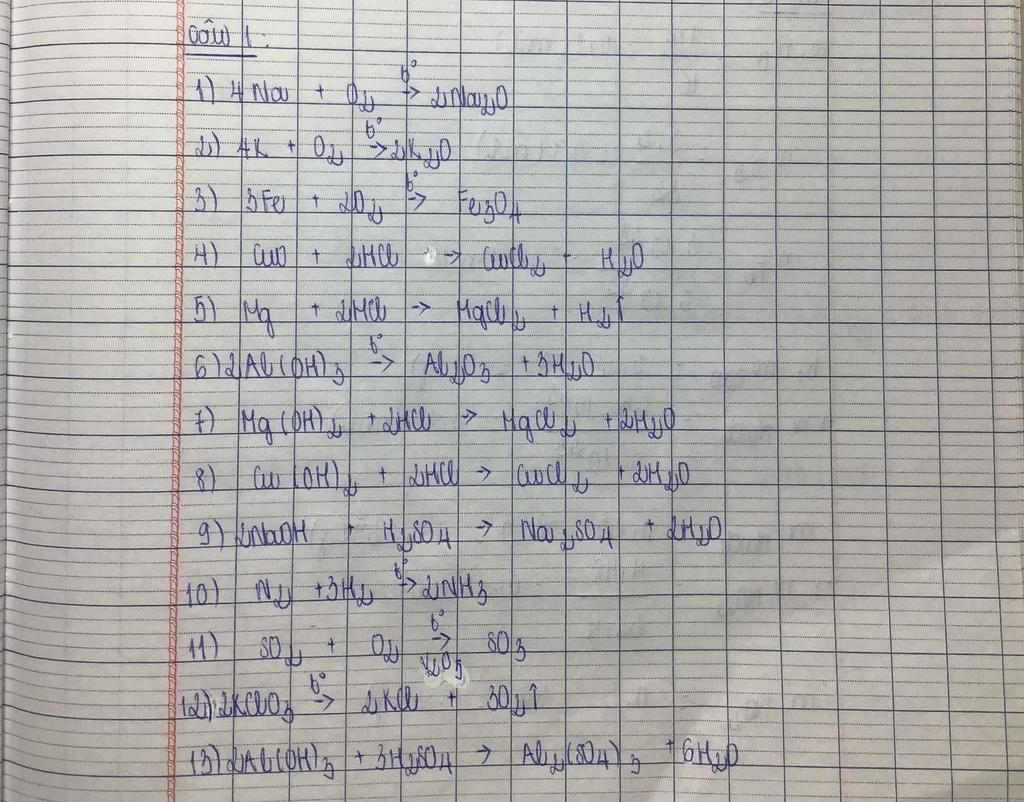 Câu 1:
1) 4Na + O₂ t°→ 2Na₂O
2) 4K + O₂ t°→ 2K₂O
3) 3Fe + 2O₂ t°→ Fe₃O₄
4) CuO + 2HCl → CuCl₂ + H₂O
5) Mg + 2HCl → MgCl₂ + H₂↑
6) 2Al(OH)₃ t°→ Al₂O₃ + 3H₂O
7) Mg(OH)₂ + 2HCl → MgCl₂ + 2H₂O
8) Cu(OH)₂ + 2HCl → CuCl₂ + 2H₂O
9) 2NaOH + H₂SO₄ → Na₂SO₄ + 2H₂O
10) N₂ + 3H₂ t°→ 2NH₃
11) SO₂ + O₂ t°→ V₂O₅ SO₃
12) 2KClO₃ t°→ 2KCl + 3O₂↑
13) 2Al(OH)₃ + 3H₂SO₄ → Al₂(SO₄)₃ + 6H₂O